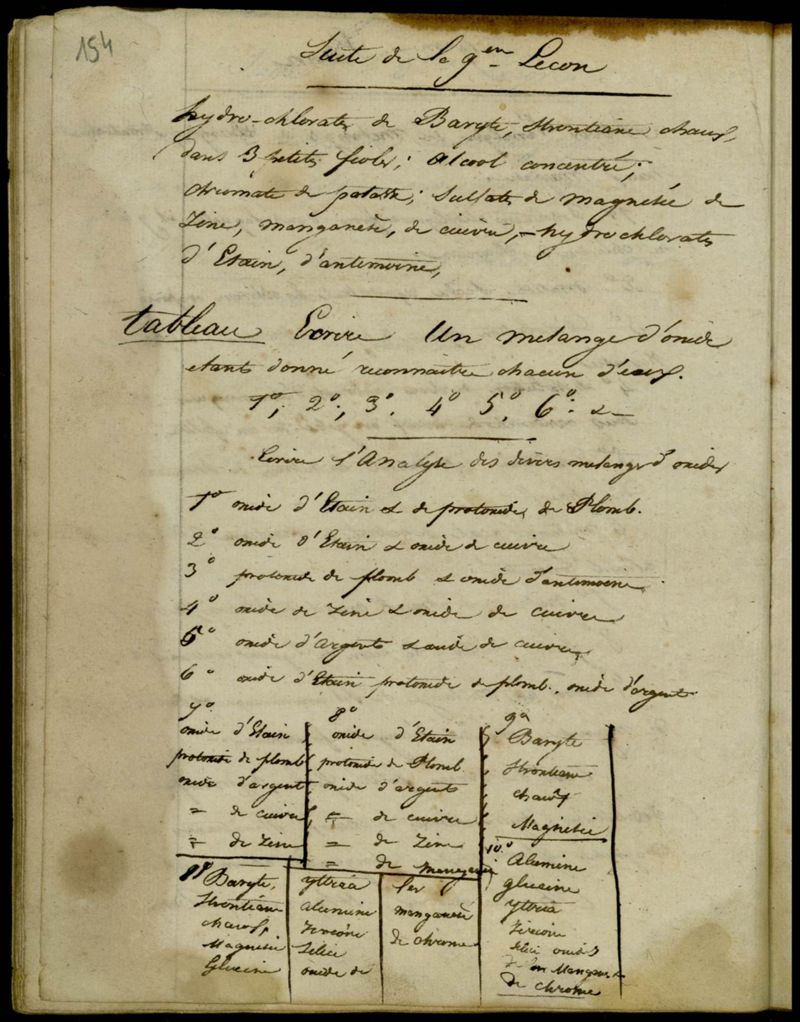 154
Suite de la 9em Lecon
hydro-chlorate de Baryte, Strontiane chaux,
dans 3 petites fioles; alcool concentré;
chromate de potasse; sulfate de magnésie de
Zinc, manganèse, de cuivre, - hydrochlorate
d'Etain, d'antimoine,
tableau Ecrire Un melange d'oxide
etant donné reconnaitre chacun d'eux.
1°; 2°; 3°. 4° 5°. 6°. &
Ecrire l'Analyse des divers melanges d'oxides
1° oxide d'Etain & de protoxide de Plomb.
2° oxide d'Etain & oxide de cuivre
3° protoxide de plomb & oxide d'antimoine.
4° oxide de zinc & oxide de cuivre
5° oxide d'argent & oxide de cuivre
6° oxide d'Etain protoxide de plomb. oxide d'argent
7°
oxide d'Etain
protoxide de plomb
oxide d'argent
= de cuivre
= de Zinc
8°
oxide d'Etain
protoxide de Plomb
oxide d'argent
= de cuivre
= de Zinc
= de manganèse
9°
Baryte
Strontiane
chaux
Magnésie
10° Alumine
glucine
yttria
zircône
silice oxides
de fer Mangan. &
de chrome
11° Baryte,
Strontiane
chaux,
Magnésie
Glucine
yttria
alumine
zircône
Silice
oxide de
fer
manganèse
de chrome